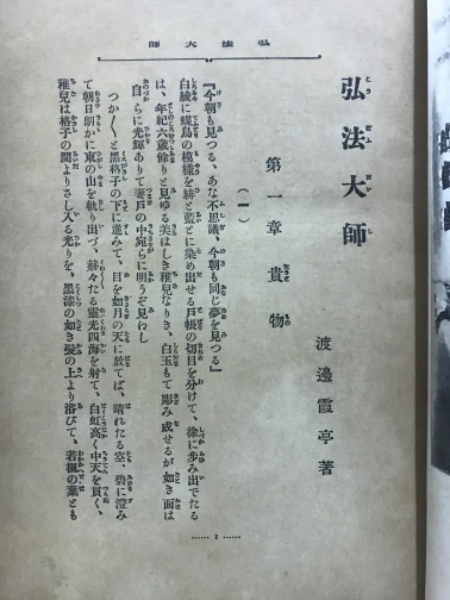 師大法弘
弘法大師
渡邊霞亭著
第一章 貴物
(一)
『今朝も見つる、あな不思議、今朝も同じ夢を見つる』
白綾に蝶鳥の模樣を緋と藍とに染め出せる戸帳の切目を分けて、徐に步み出でたる
は、年紀六歳餘りと見ゆる美はしき稚兒なりき、白玉もて彫み成せるが如き面は
自らに光輝ありて妻戸の中宛らに明うぞ見わし
つか〱と黑格子の下に進みて、目を如月の天に放てば、晴れたる空、碧に澄み
て朝日朗かに東の山を軌り出づ、赫々たる靈光四海を射て、白虹高く中天を貫く、
稚兒は格子の間よりさし入る光りを、黑漆の如き髮の上より浴びて、若楓の葉とも
…… 1 ……